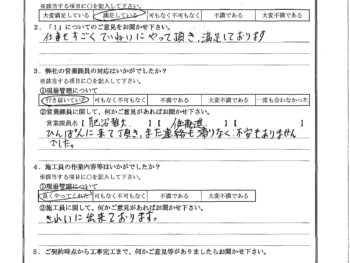 ※該当する項目に○を記入して下さい。
大変満足している 満足している 可もなく不可もなく 不満である 大変不満である
2.「1」についてのご意見をお聞かせ下さい。
仕事もすごくていねいにやって頂き、満足しております
3.弊社の営業課員の対応はいかがでしたか?
※該当する項目に○を記入して下さい。
①現場管理について
行き届いている 可もなく不可もなく 不満である 大変不満である 一度も会わなかった
②営業課員に関して、何かご意見があればお聞かせ下さい。
営業課員名【 】【 】
ひんぱんに来て頂き、また連絡も滞りなく、不安もありません
でした。
4.施工員の作業内容等はいかがでしたか?
※該当する項目に○を記入して下さい。
①現場管理について
良くやってくれた 可もなく不可もなく 不満である 大変不満である
②施工員に関して、何かご意見があればお聞かせ下さい。
きれいに出来ております。
5.ご契約時点から工事完工まで、何かご意見等がありましたらお聞かせ下さい。